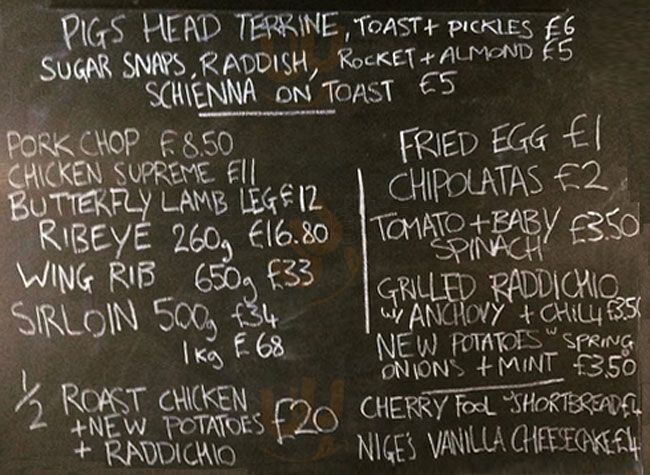 PIGS HEAD TERRINE, TOAST + PICKLES £6
SUGAR SNAPS, RADDISH, ROCKET + ALMOND £5
SCHIENNA ON TOAST £5
PORK CHOP £8.50
CHICKEN SUPREME £11
BUTTERFLY LAMB LEG £12
RIBEYE 260g £16.80
WING RIB 650g £33
SIRLOIN 500g £34
1kg £68
1/2 ROAST CHICKEN
+ NEW POTATOES £20
+ RADDICHIO
FRIED EGG £1
CHIPOLATAS £2
TOMATO + BABY
SPINACH £3.50
GRILLED RADDICHIO
w/ ANCHOVY + CHILLI £3.50
NEW POTATOES w SPRING
ONIONS + MINT £3.50
CHERRY FOOL w SHORTBREAD £4
NIGE'S VANILLA CHEESECAKE £4